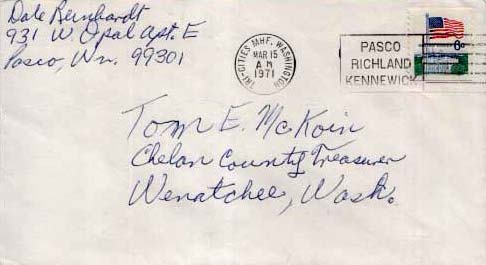 Dale Bernhardt
931 W Opal Apt. E
Pasco, Wn. 99301
TRI-CITIES MHF, WASHINGTON
MAR 15
AM
1971
PASCO
RICHLAND
KENNEWICK
6c
Tom E. McKoin
Chelan County Treasurer
Wenatchee, Wash.